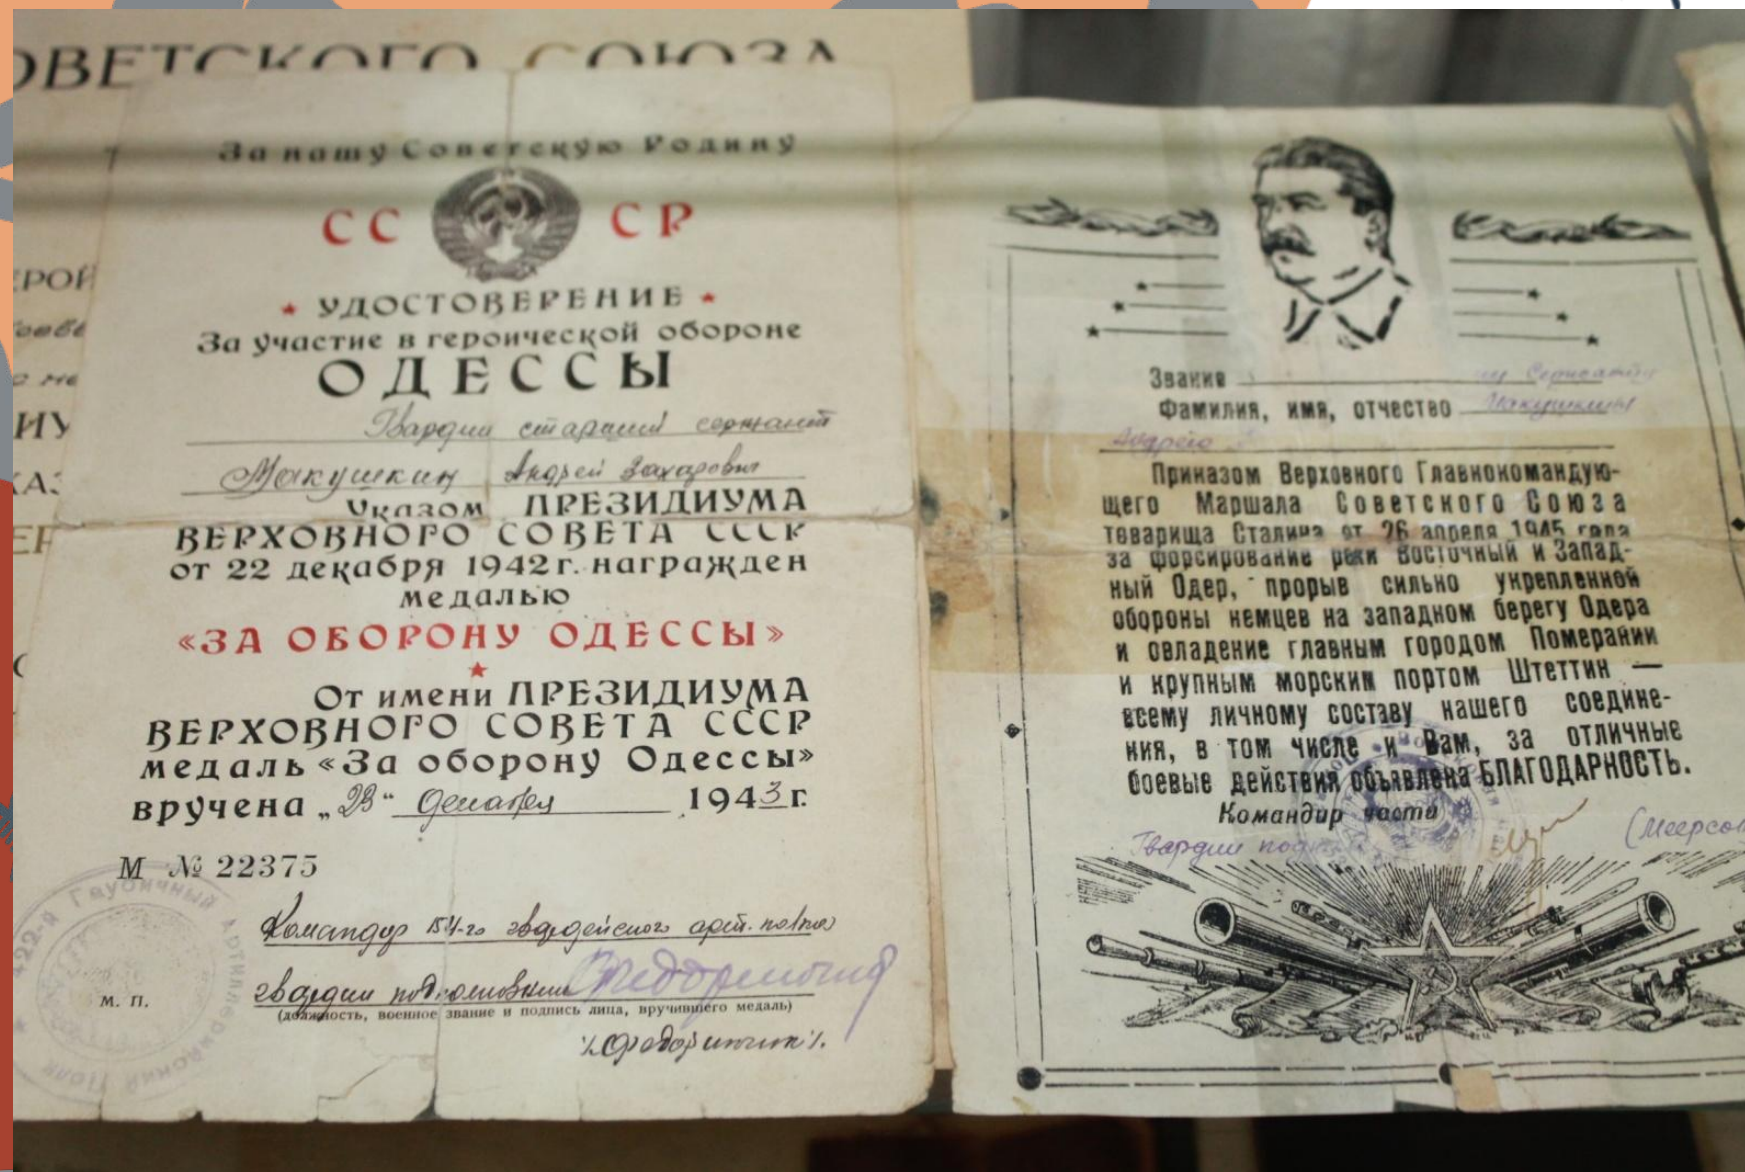 СОЮЗА
За нашу Советскую Родину
СС СР
УДОСТОВЕРЕНИЕ
За участие в героической обороне
ОДЕССЫ
Гвардии старший сержант
Макушкин Андрей Захарович
Указом ПРЕЗИДИУМА
ВЕРХОВНОГО СОВЕТА СССР
от 22 декабря 1942 г. награжден
медалью
«ЗА ОБОРОНУ ОДЕССЫ»
От имени ПРЕЗИДИУМА
ВЕРХОВНОГО СОВЕТА СССР
медаль «За оборону Одессы»
вручена „23“ декабря 1943 г.
М № 22375
Командир 154-го гвардейского арт. полка
гвардии подполковник
м. п.
(должность, военное звание и подпись лица, вручившего медаль)
Звание
Фамилия, имя, отчество
Приказом Верховного Главнокомандую-
щего Маршала Советского Союза
товарища Сталина от 26 апреля 1945 года
за форсирование реки Восточный и Запад-
ный Одер, прорыв сильно укрепленной
обороны немцев на западном берегу Одера
и овладение главным городом Померании
и крупным морским портом Штеттин —
всему личному составу нашего соедине-
ния, в том числе и Вам, за отличные
боевые действия объявлена БЛАГОДАРНОСТЬ.
Командир части
Гвардии